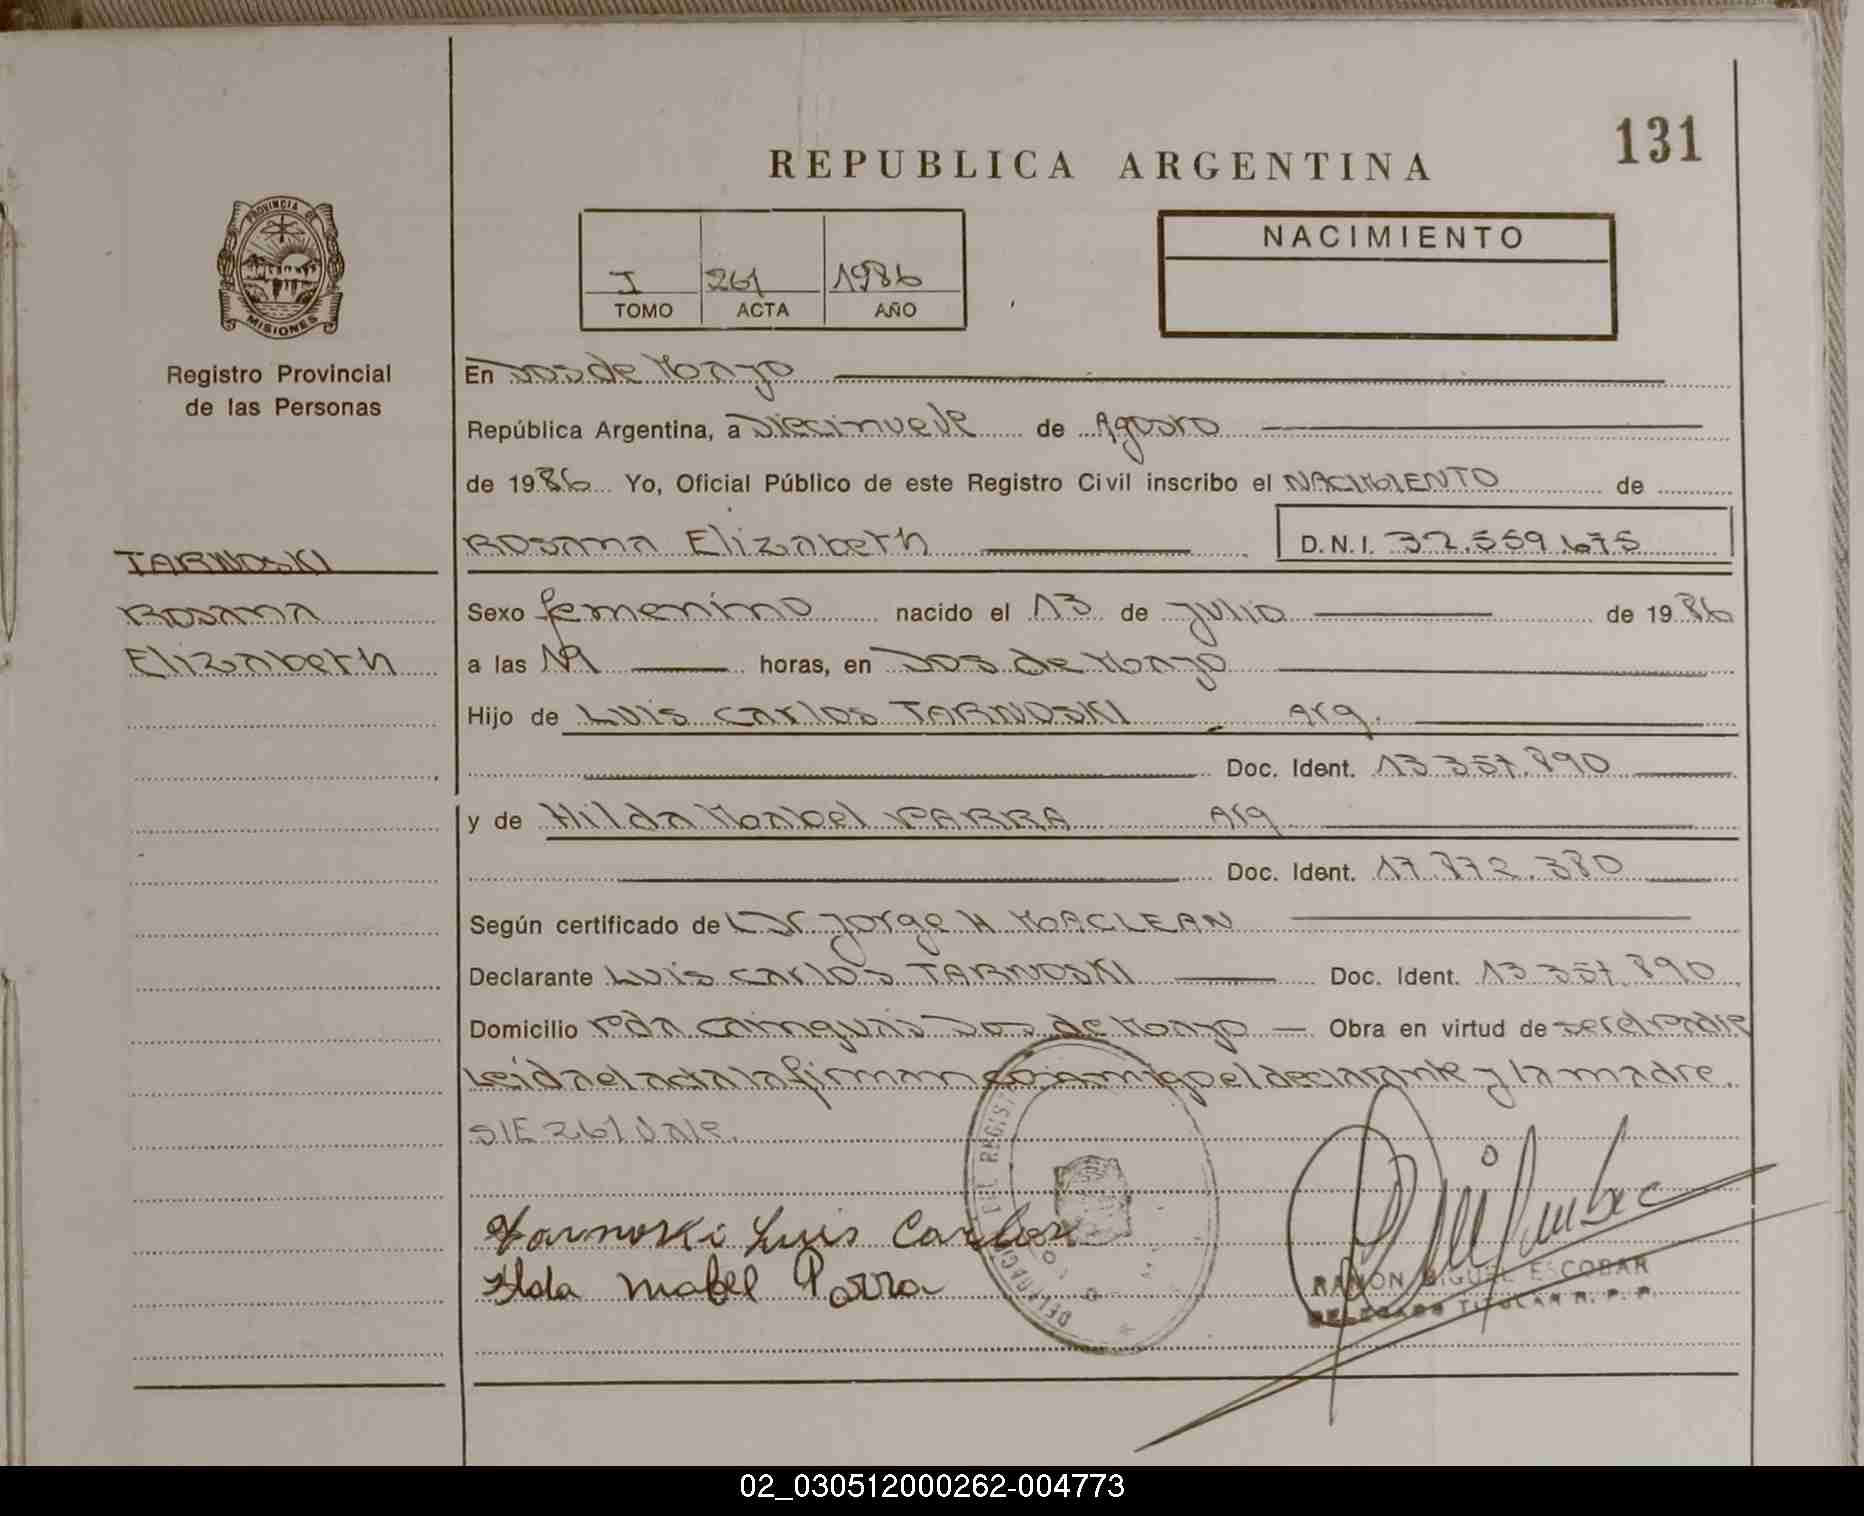 131
REPUBLICA ARGENTINA
PROVINCIA DE
MISIONES
Registro Provincial
de las Personas
I 261 1986
TOMO ACTA AÑO
NACIMIENTO
En Dos de Mayo
República Argentina, a Diecinueve de Agosto
de 1986 Yo, Oficial Público de este Registro Civil inscribo el NACIMIENTO de
ROSANA Elizabeth D.N.I. 32.559.675
TARNOSKI
ROSANA
Elizabeth
Sexo femenino nacido el 13 de julio de 1986
a las 19 horas, en Dos de Mayo
Hijo de Luis Carlos TARNOSKI Arg.
Doc. Ident. 13.357.890
y de Hilda Mabel PARRA Arg
Doc. Ident. 17.872.380
Según certificado de Dr Jorge H MACLEAN
Declarante Luis Carlos TARNOSKI Doc. Ident. 13.357.890
Domicilio Pcia Cainguas Dos de Mayo Obra en virtud de ser el Padre
Leida el acta la firman conmigo el declarante y la madre.
S/E 261 Vale.
Tarnoski Luis Carlos
Ilda Mabel Parra
RAMON MIGUEL ESCOBAR
DELEGADO TITULAR R. P. P.
02_030512000262-004773